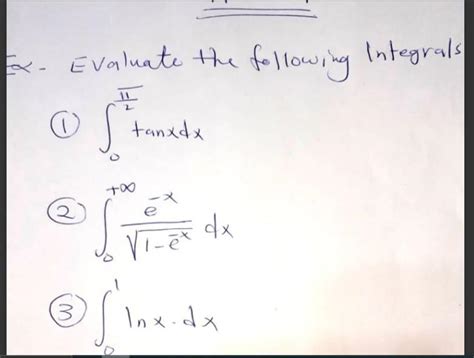 Ex- Evaluate the following Integrals
① ∫₀^(π/2) tanxdx
② ∫₀^(+∞) e^(-x)/√(1-e^(-x)) dx
③ ∫₀^1 lnx.dx